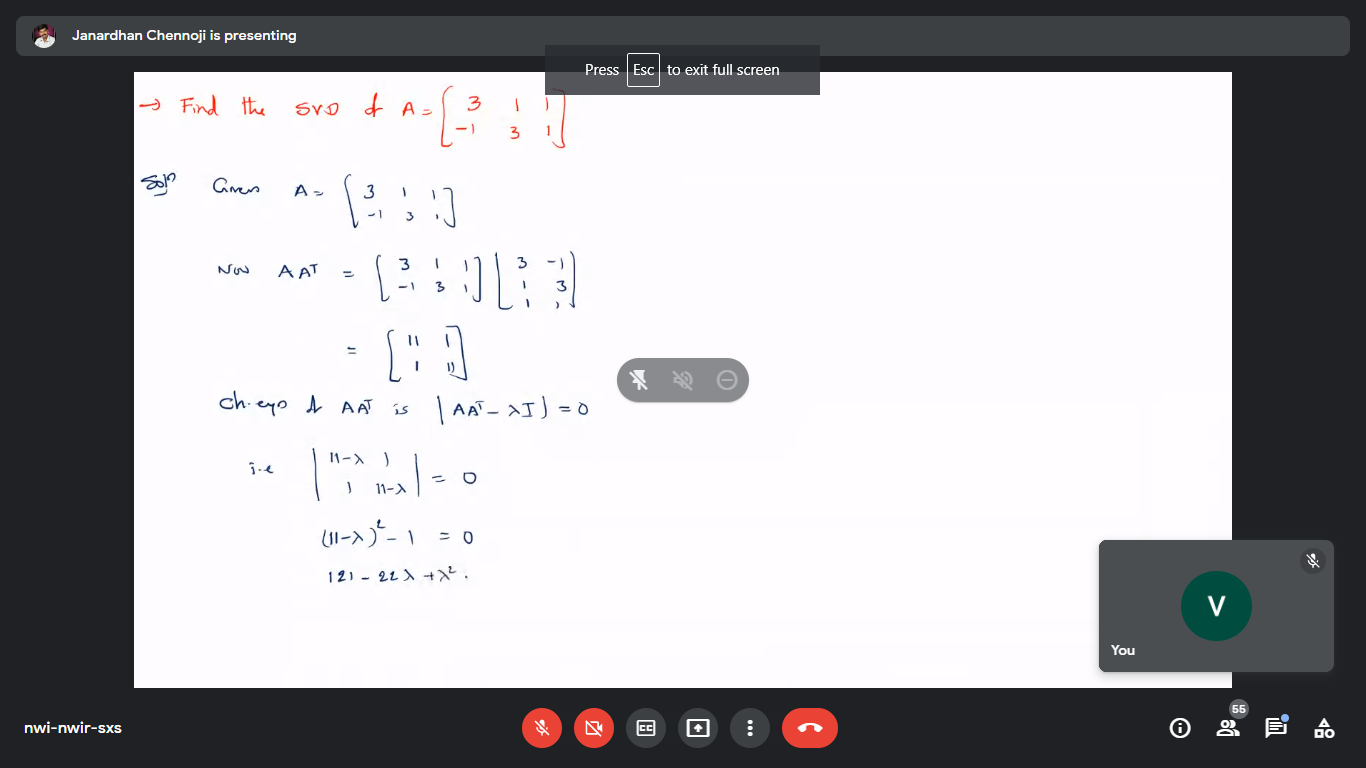 Janardhan Chennoji is presenting
Press Esc to exit full screen
→ Find the SVD of A = [ 3 1 1
-1 3 1 ]
Soln Given A = [ 3 1 1
-1 3 1 ]
Now AAᵀ = [ 3 1 1 ] [ 3 -1
-1 3 1 ] 1 3
1 1 ]
= [ 11 1
1 11 ]
Ch. eqn of AAᵀ is |AAᵀ - λI| = 0
i.e | 11-λ 1
1 11-λ | = 0
(11-λ)² - 1 = 0
121 - 22λ + λ² .
V
You
nwi-nwir-sxs
CC
55